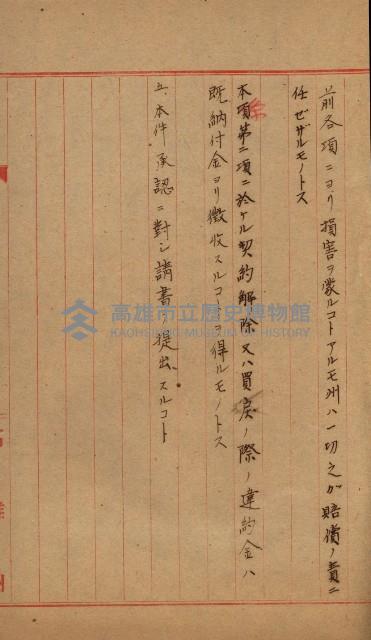 前各項ニヨリ損害ヲ蒙ルコトアルモ州ハ一切之ガ賠償ノ責ニ
任ゼザルモノトス
本項第二項ニ於ケル契約解除又ハ買戻ノ際ノ違約金ハ
既納付金ヨリ徴收スルコトヲ得ルモノトス
五、本件承認ニ對シ請書提出スルコト
高雄市立歷史博物館
KAOHSIUNG MUSEUM OF HISTORY